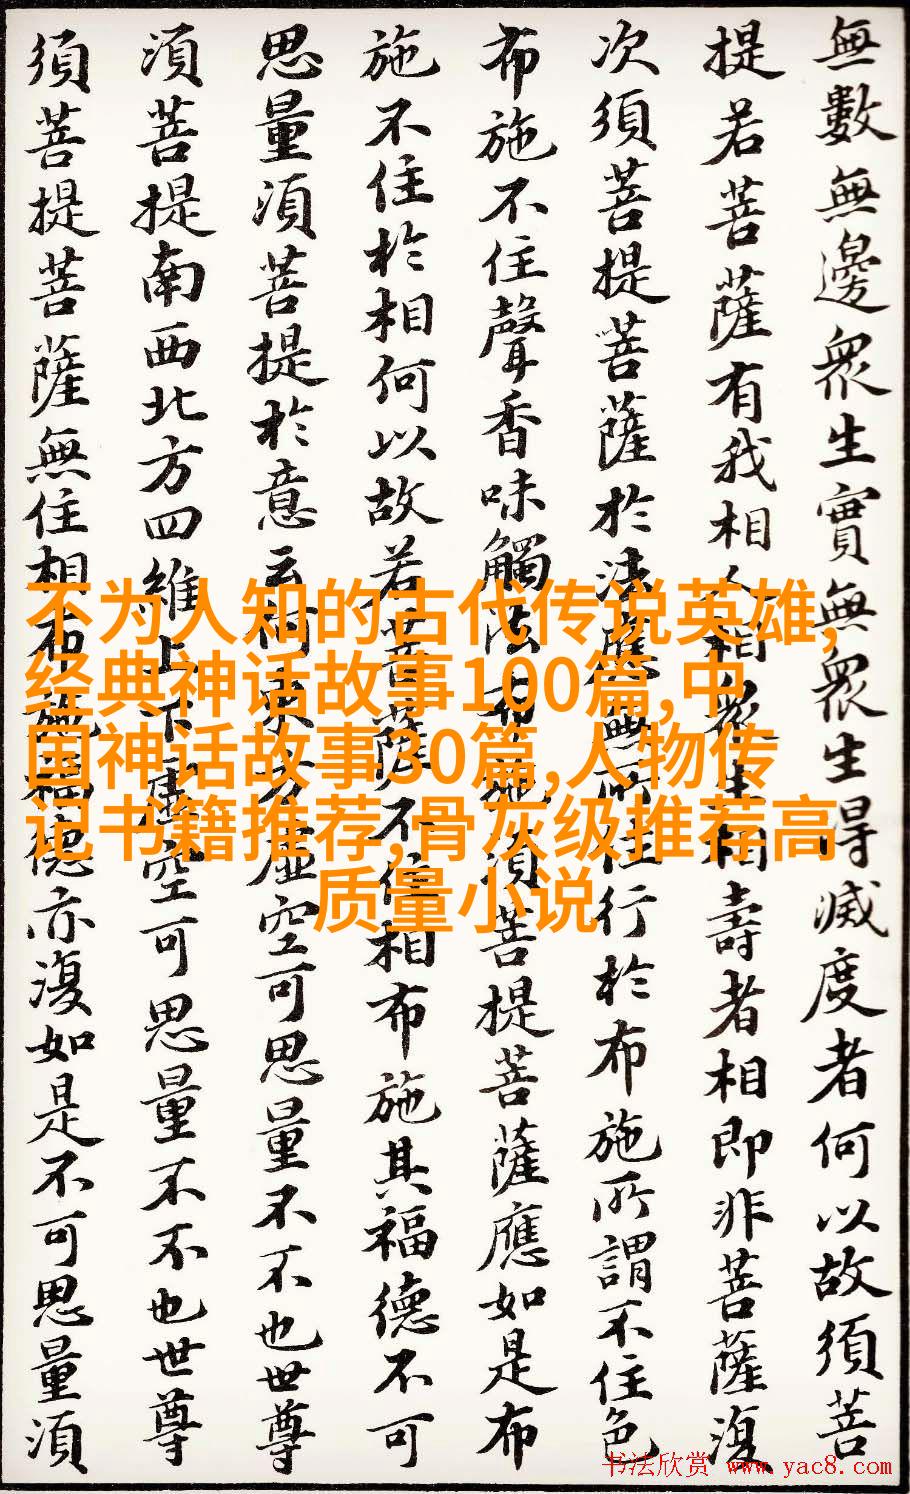 無數無邊衆生實無衆生得滅度者何以故須菩
提若菩薩有我相人相衆生相壽者相即非菩薩復
次須菩提菩薩於法應無所住行於布施所謂不住色
布施不住聲香味觸法布施須菩提菩薩應如是布
施不住於相何以故若菩薩不住相布施其福德不可
思量須菩提於意云何東方虛空可思量不不也世尊
須菩提南西北方四維上下虛空可思量不不也世尊
須菩提菩薩無住相布施福德亦復如是不可思量須
不为人知的古代传说英雄,
经典神话故事100篇,中
国神话故事30篇,人物传
记书籍推荐,骨灰级推荐高
质量小说
书法欣赏 www.yac8.com